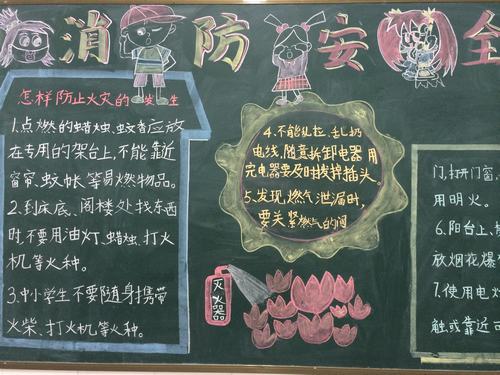 消防安全
怎样防止火灾的发生
1.点燃的蜡烛、蚊香应放
在专用的架台上,不能靠近
窗帘、蚊帐等易燃物品。
2.到床底、阁楼处找东西
时,不要用油灯、蜡烛、打火
机等火种。
3.中小学生不要随身携带
火柴、打火机等火种。
4.不能乱拉、乱扔
电线,随意拆卸电器用
完电器要及时拨掉插头。
5.发现燃气泄漏时,
要关紧燃气的阀
灭火器
门,打开门窗,
用明火。
6.阳台上、
放烟花爆
7.使用电
触,或靠近可